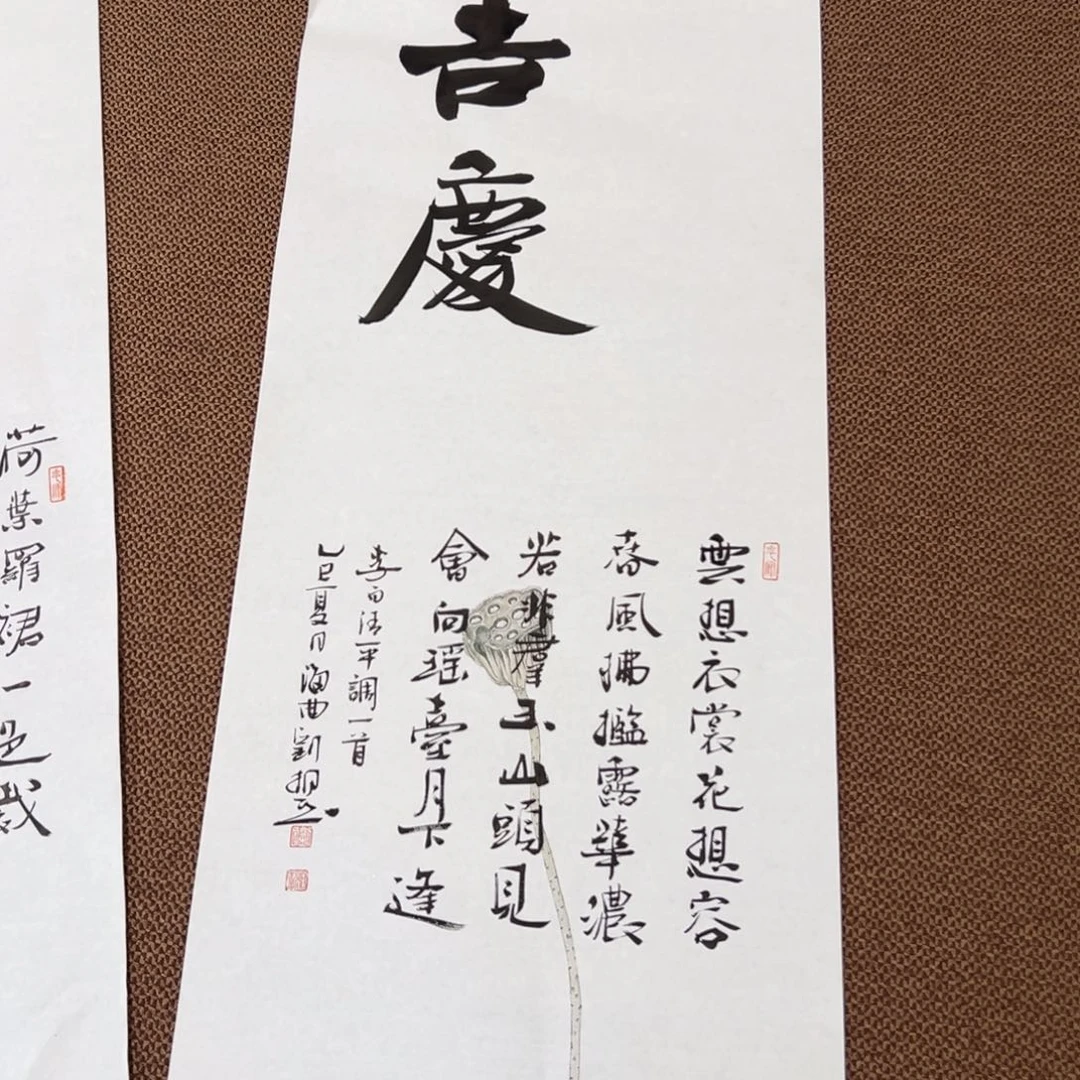 吉慶
雲想衣裳花想容
春風拂檻露華濃
若非羣玉山頭見
會向瑶臺月下逢
李白清平調一首
乙巳夏月海曲劉
荷葉羅裙一色裁